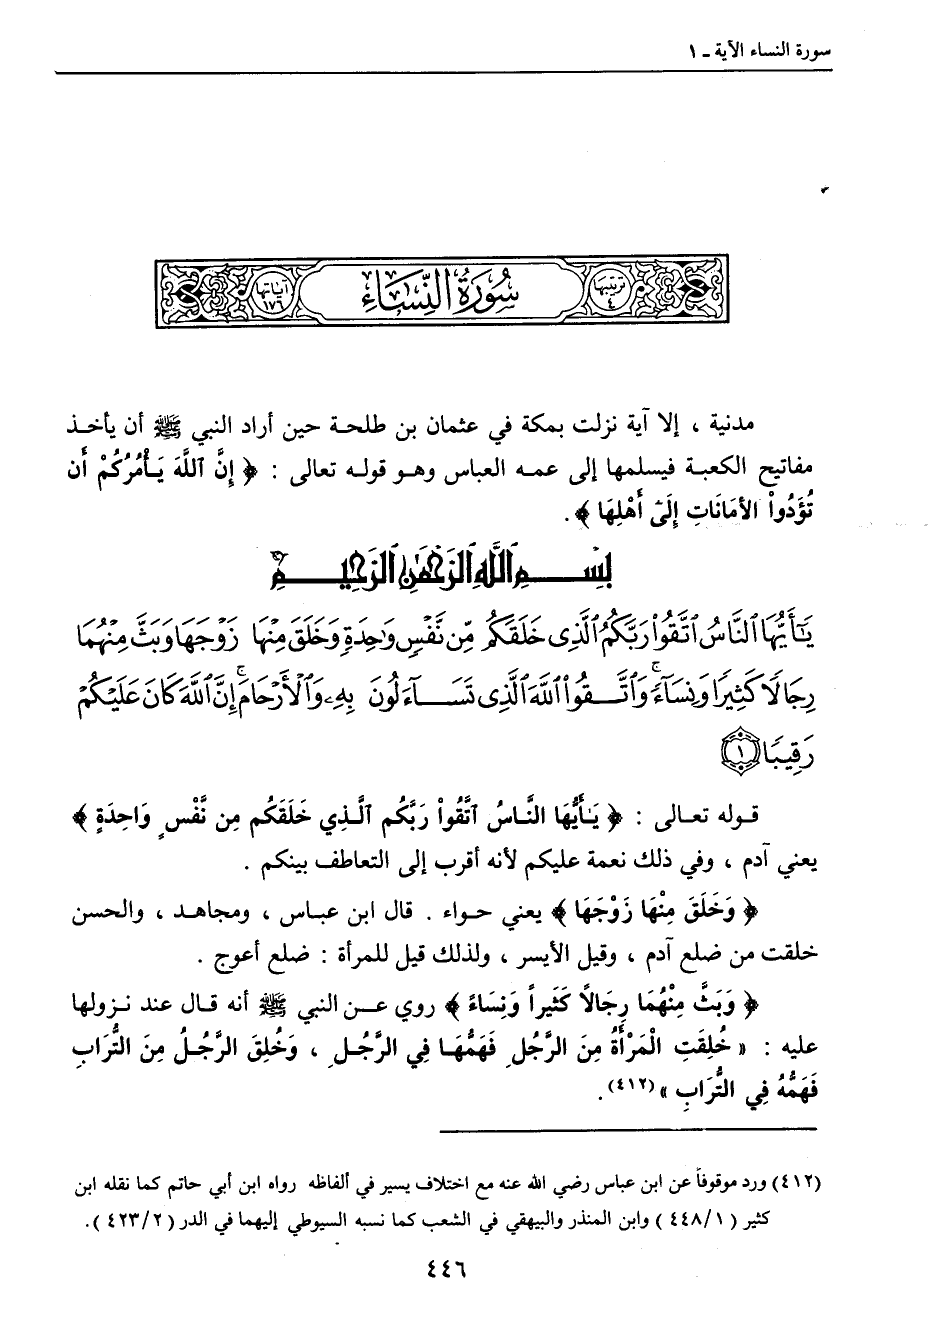 سورة النساء الآية ـ ١
ترتيبها ٤ سُورَةُ النِّسَاءِ آياتها ١٧٦
مدنية ، إلا آية نزلت بمكة في عثمان بن طلحة حين أراد النبي ﷺ أن يأخذ
مفاتيح الكعبة فيسلمها إلى عمه العباس وهو قوله تعالى : ﴿ إِنَّ ٱللَّهَ يَأْمُرُكُمْ أَن
تُؤَدُواْ الأمَانَاتِ إِلَىٰٓ أَهْلِهَا ﴾ .
بِسْمِ ٱللَّهِ ٱلرَّحْمَٰنِ ٱلرَّحِيمِ
يَٰٓأَيُّهَا ٱلنَّاسُ ٱتَّقُواْ رَبَّكُمُ ٱلَّذِى خَلَقَكُم مِّن نَّفْسٍ وَٰحِدَةٍ وَخَلَقَ مِنْهَا زَوْجَهَا وَبَثَّ مِنْهُمَا
رِجَالًا كَثِيرًا وَنِسَآءً ۚ وَٱتَّقُواْ ٱللَّهَ ٱلَّذِى تَسَآءَلُونَ بِهِۦ وَٱلْأَرْحَامَ ۚ إِنَّ ٱللَّهَ كَانَ عَلَيْكُمْ
رَقِيبًا ١
قوله تعالى : ﴿ يَٰأَيُّهَا النَّاسُ ٱتَّقُواْ رَبَّكُم ٱلَّذِي خَلَقَكُم مِن نَّفْسٍ وَاحِدَةٍ ﴾
يعني آدم ، وفي ذلك نعمة عليكم لأنه أقرب إلى التعاطف بينكم .
﴿ وَخَلَقَ مِنْهَا زَوْجَهَا ﴾ يعني حواء . قال ابن عباس ، ومجاهد ، والحسن
خلقت من ضلع آدم ، وقيل الأيسر ، ولذلك قيل للمرأة : ضلع أعوج .
﴿ وَبَثَّ مِنْهُمَا رِجَالاً كَثَيراً وَنِسَاءً ﴾ روي عن النبي ﷺ أنه قال عند نزولها
عليه : « خُلِقَتِ الْمَرْأَةُ مِنَ الرَّجُلِ فَهَمُّهَا فِي الرَّجُلِ ، وَخُلِقَ الرَّجُلُ مِنَ التُّرَابِ
فَهَمُّهُ فِي التُّرَابِ »(٤١٢) .
(٤١٢) ورد موقوفاً عن ابن عباس رضي الله عنه مع اختلاف يسير في ألفاظه رواه ابن أبي حاتم كما نقله ابن
كثير ( ٤٤٨/١ ) وابن المنذر والبيهقي في الشعب كما نسبه السيوطي إليهما في الدر ( ٤٢٣/٢ ) .
٤٤٦